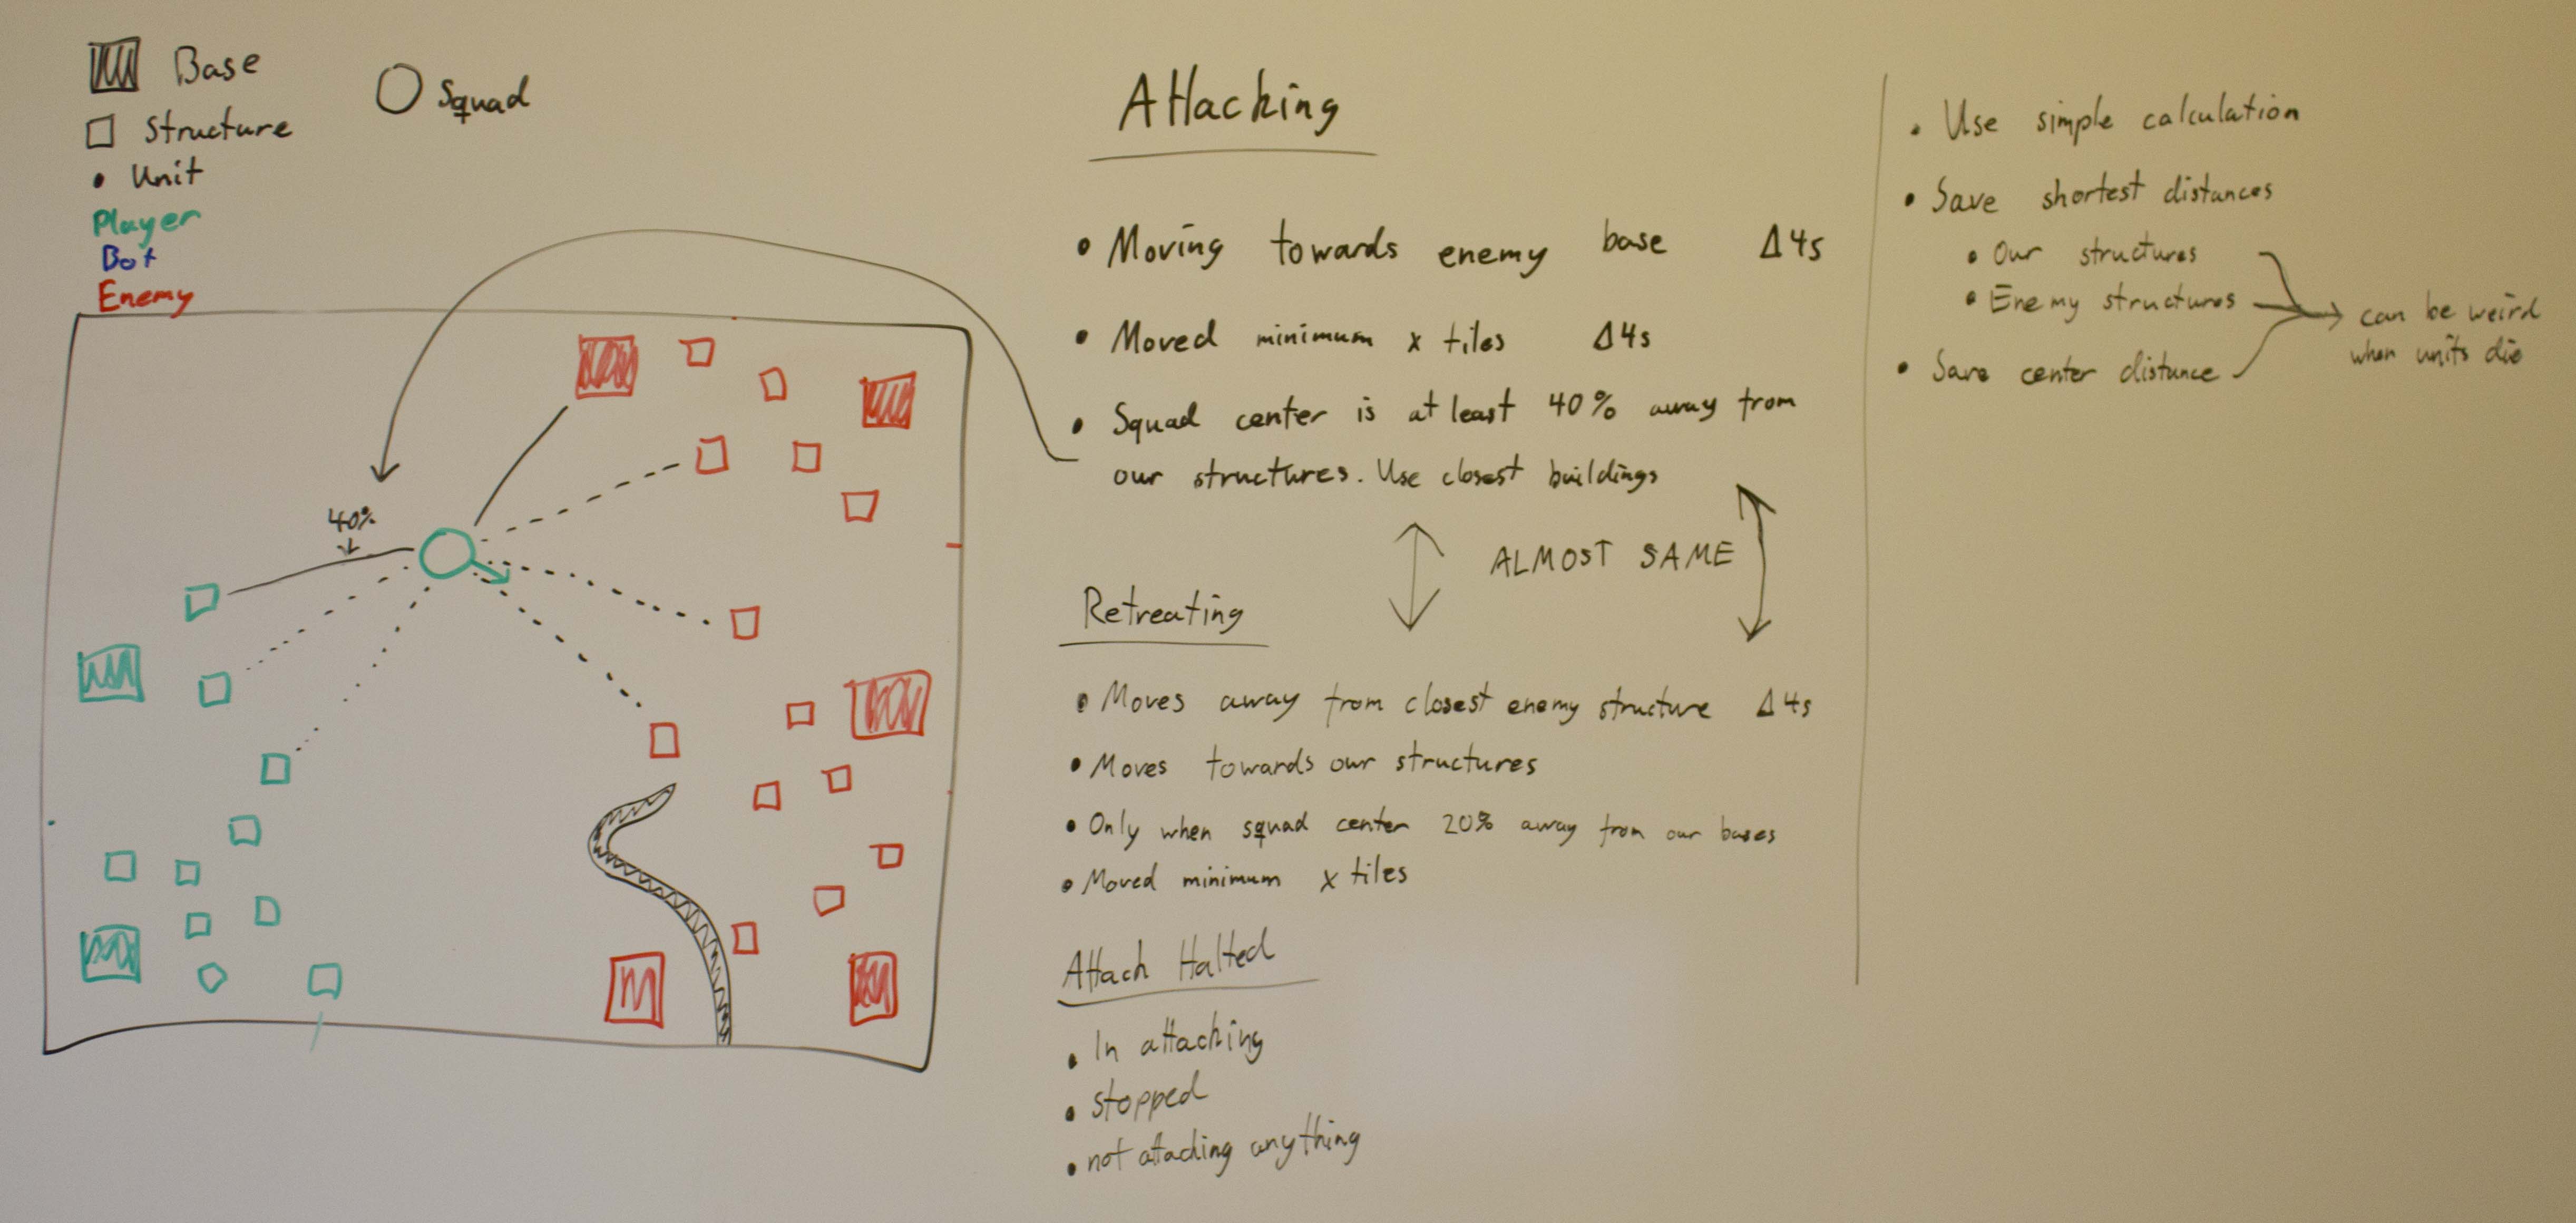 Base
Squad
Structure
Unit
Player
Bot
Enemy
40%
Attacking
• Moving towards enemy base Δ4s
• Moved minimum x tiles Δ4s
• Squad center is at least 40% away from
our structures. Use closest buildings
ALMOST SAME
Retreating
• Moves away from closest enemy structure Δ4s
• Moves towards our structures
• Only when squad center 20% away from our bases
• Moved minimum x tiles
Attack Halted
• In attacking
• stopped
• not attacking anything
• Use simple calculation
• Save shortest distances
• Our structures
• Enemy structures
can be weird
when units die
• Save center distance